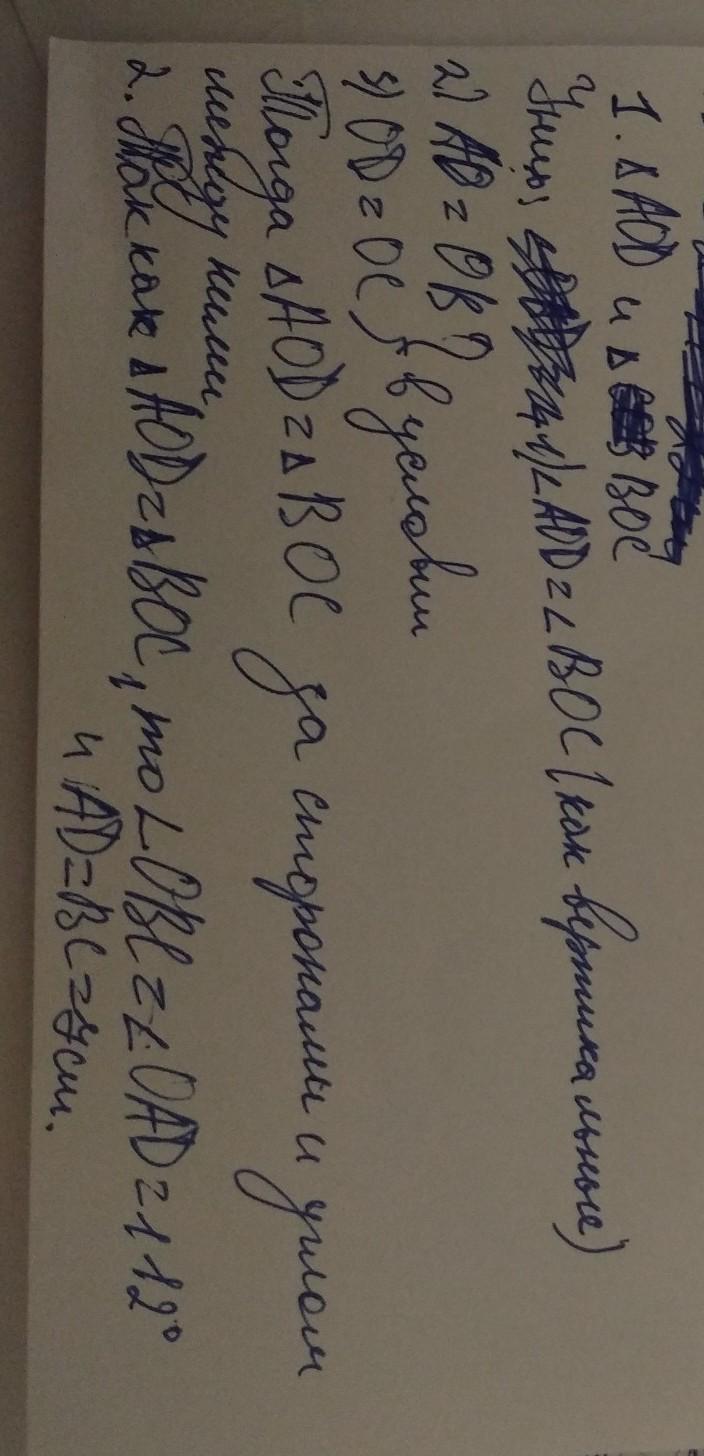 1. △ AOD и △ BOC
У них: 1) ∠ AOD = ∠ BOC (как вертикальные)
2) AO = OB
3) OD = OC } в условии
Тогда △ AOD = △ BOC да сторонами и углом
между ними
2. Так как △ AOD = △ BOC, то ∠ OBC = ∠ OAD = 112°
и AD = BC = 7 см.